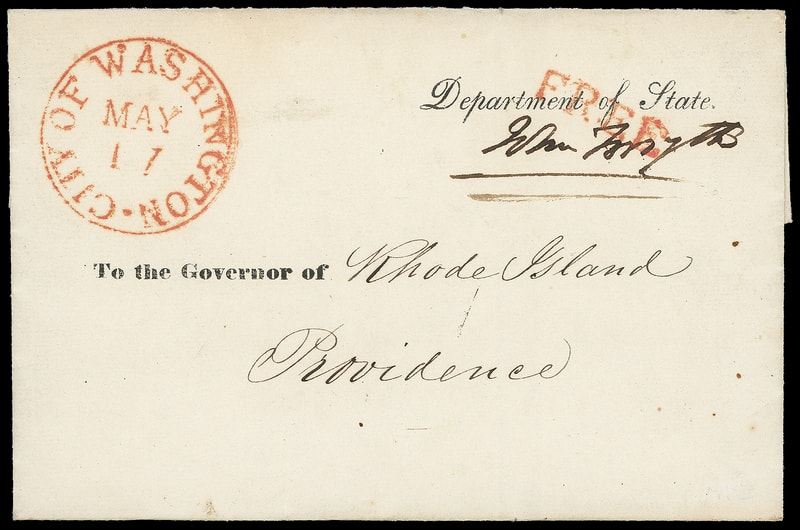 CITY OF WASHINGTON
MAY
17
FREE
Department of State.
John Forsyth
To the Governor of Rhode Island
Providence